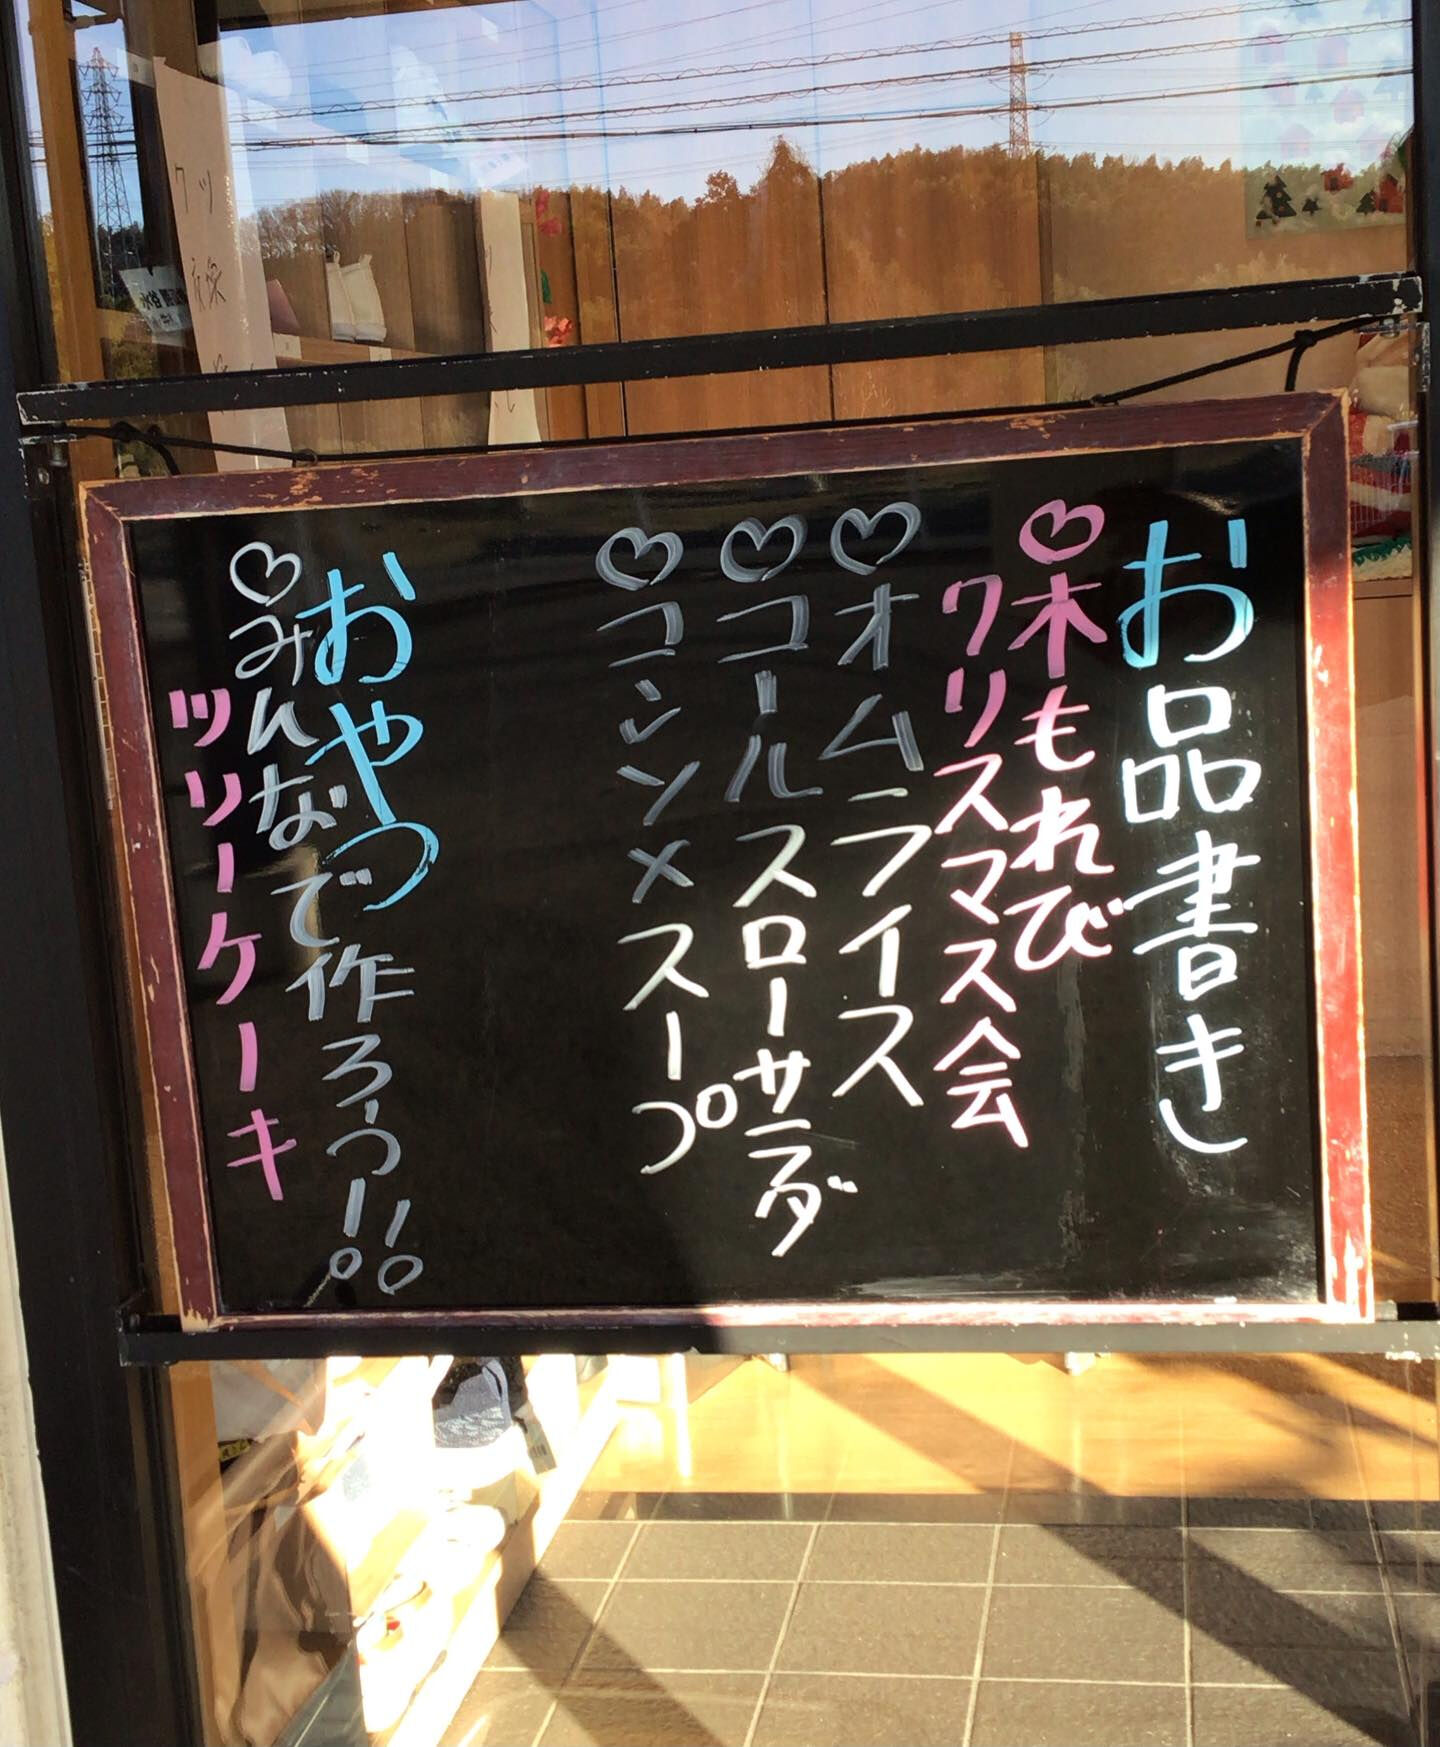 お品書き
♡木もれび
クリスマス会
♡オムライス
♡コールスローサラダ
♡コンソメスープ
おやつ
♡みんなで作ろうー!!
ツリーケーキ